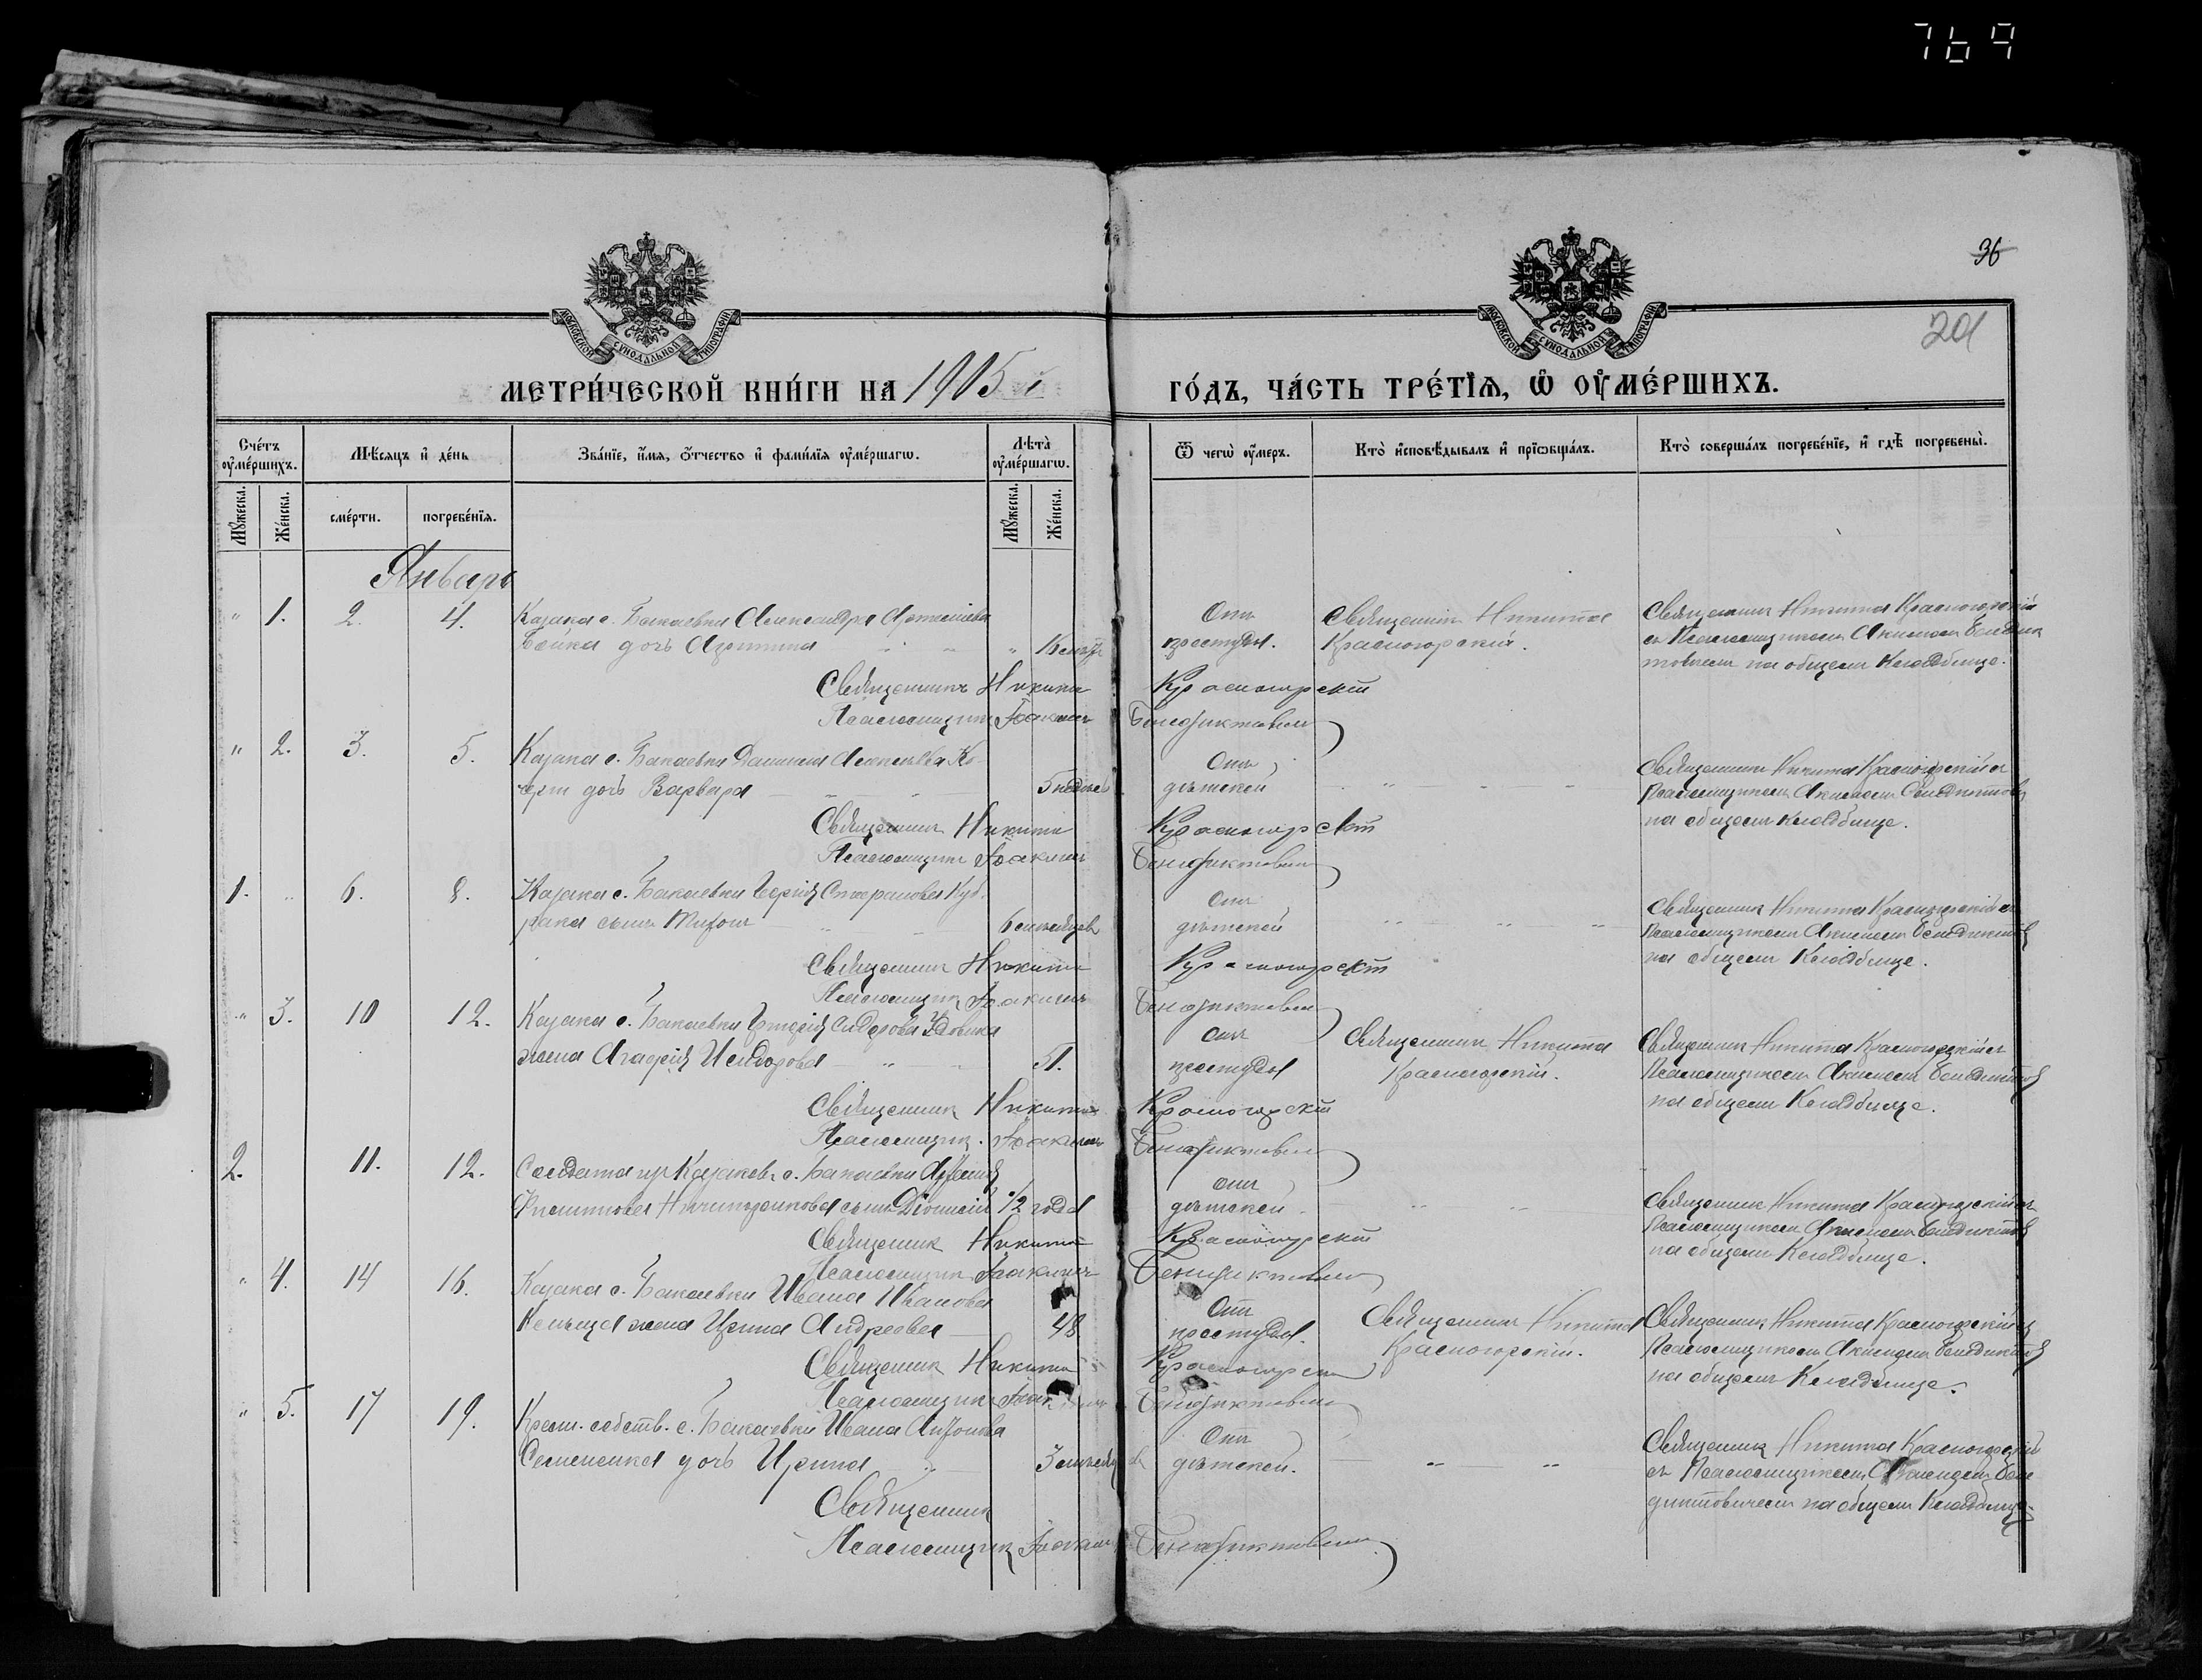 769
36
201
МОСКОВСКОЙ СѴНОДАЛЬНОЙ ТИПОГРАФІИ
МОСКОВСКОЙ СѴНОДАЛЬНОЙ ТИПОГРАФІИ
МЕТРИ́ЧЕСКОЙ КНИ́ГИ НА 1905 й
ГО́ДЪ, ЧА́СТЬ ТРЕ́ТІѦ, Ѡ҆ ОУ҆МЕ́РШИХЪ.
Сче́тъ оу҆ме́ршихъ.
Мѣ́сяцъ и҆ де́нь
Зва́ніе, и҆́мя, ѻ҆́тчество и҆ фами́лія оу҆ме́ршагѡ.
Лѣта̀ оу҆ме́ршагѡ.
Ѿ чегѡ̀ оу҆́меръ.
Кто̀ и҆сповѣ́дывалъ и҆ прїѡбща́лъ.
Кто̀ соверша́лъ погребе́ніе, и҆ гдѣ̀ погребены̀.
Мꙋ́жеска.
Же́нска.
сме́рти.
погребе́нія.
Мꙋ́жеска.
Же́нска.
Январь
" 1. 2. 4. Казака с. Бакаевки Александра Артеміева
Бойка дочь
Отъ простуды.
Священникъ Никита Красногорскій.
Священникъ Никита Красногорскій
съ Псаломщикомъ Акимомъ Бенедик
товичем на общемъ Кладбище.
Священникъ Никита Красногорскій
Псаломщикъ Іоакимъ Бенедиктовичъ
" 2. 3. 5. Казака с. Бакаевки Даниила Алексѣева Ко-
дочь Варвара 5 недель
Отъ дѣтской
Священникъ Никита Красногорскій съ
Псаломщикомъ Акимомъ Бенедиктов
на общемъ Кладбище.
Священникъ Никита Красногорскій
Псаломщикъ Іоакимъ Бенедиктовичъ
1. " 6. 8. Казака с. Бакаевки Сергія Стефанова Куд-
сынъ 6 мѣсяцев
Отъ дѣтской
Священникъ Никита Красногорскій съ
Псаломщикомъ Акимомъ Бенедиктов
на общемъ Кладбище.
Священникъ Никита Красногорскій
Псаломщикъ Іоакимъ Бенедиктовичъ
" 3. 10 12. Казака с. Бакаевки Сидорова Удовика
жена Агафія Исидорова 51.
Отъ простуды
Священникъ Никита Красногорскій.
Священникъ Никита Красногорскій съ
Псаломщикомъ Акимомъ Бенедиктов
на общемъ Кладбище.
Священникъ Никита Красногорскій
Псаломщикъ. Іоакимъ Бенедиктовичъ
2. 11. 12. Солдата изъ Казаковъ с. Бакаевки
Филиппова сынъ Діонисій 1/2 года
Отъ дѣтской
Священникъ Никита Красногорскій съ
Псаломщикомъ Акимомъ Бенедиктов
на общемъ Кладбище.
Священникъ Никита Красногорскій
Псаломщикъ Іоакимъ Бенедиктовичъ
" 4. 14 16. Казака с. Бакаевки Ивана Иванова
жена Ирина Андреева 48
Отъ простуды.
Священникъ Никита Красногорскій.
Священникъ Никита Красногорскій съ
Псаломщикомъ Акимомъ Бенедиктов
на общемъ Кладбище.
Священникъ Никита Красногорскій
Псаломщикъ Іоакимъ Бенедиктовичъ
" 5. 17 19. Крест. собств. с. Бакаевки Ивана Антонова
Семененка дочь Ирина 3 мѣсяцев
Отъ дѣтской.
Священникъ Никита Красногорскій
съ Псаломщикомъ Акимомъ Бене
диктовичемъ на общемъ Кладбище.
Священникъ
Псаломщикъ Іоакимъ Бенедиктовичъ